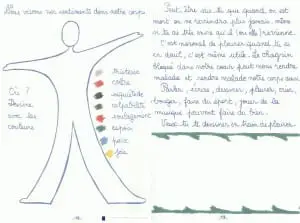 Nous vivons nos sentiments dans notre corps
Où ?
Dessine
avec les
couleurs
tristesse
colère
inquiétude
culpabilité
soulagement
espoir
paix
joie
Peut être sais tu que quand on est
mort on ne reviendra plus jamais, même
si tu as très envie qu'il/ou elle revienne.
C'est normal de pleurer quand tu as
c'est même utile. Le chagrin
bloqué dans notre cœur peut nous rendre
malade et rendre malade notre corps aussi.
Parler, écrire, dessiner, pleurer, crier,
bouger, faire du sport, jouer de la
musique peuvent faire du bien.
Veux-tu te dessiner en train de pleurer.